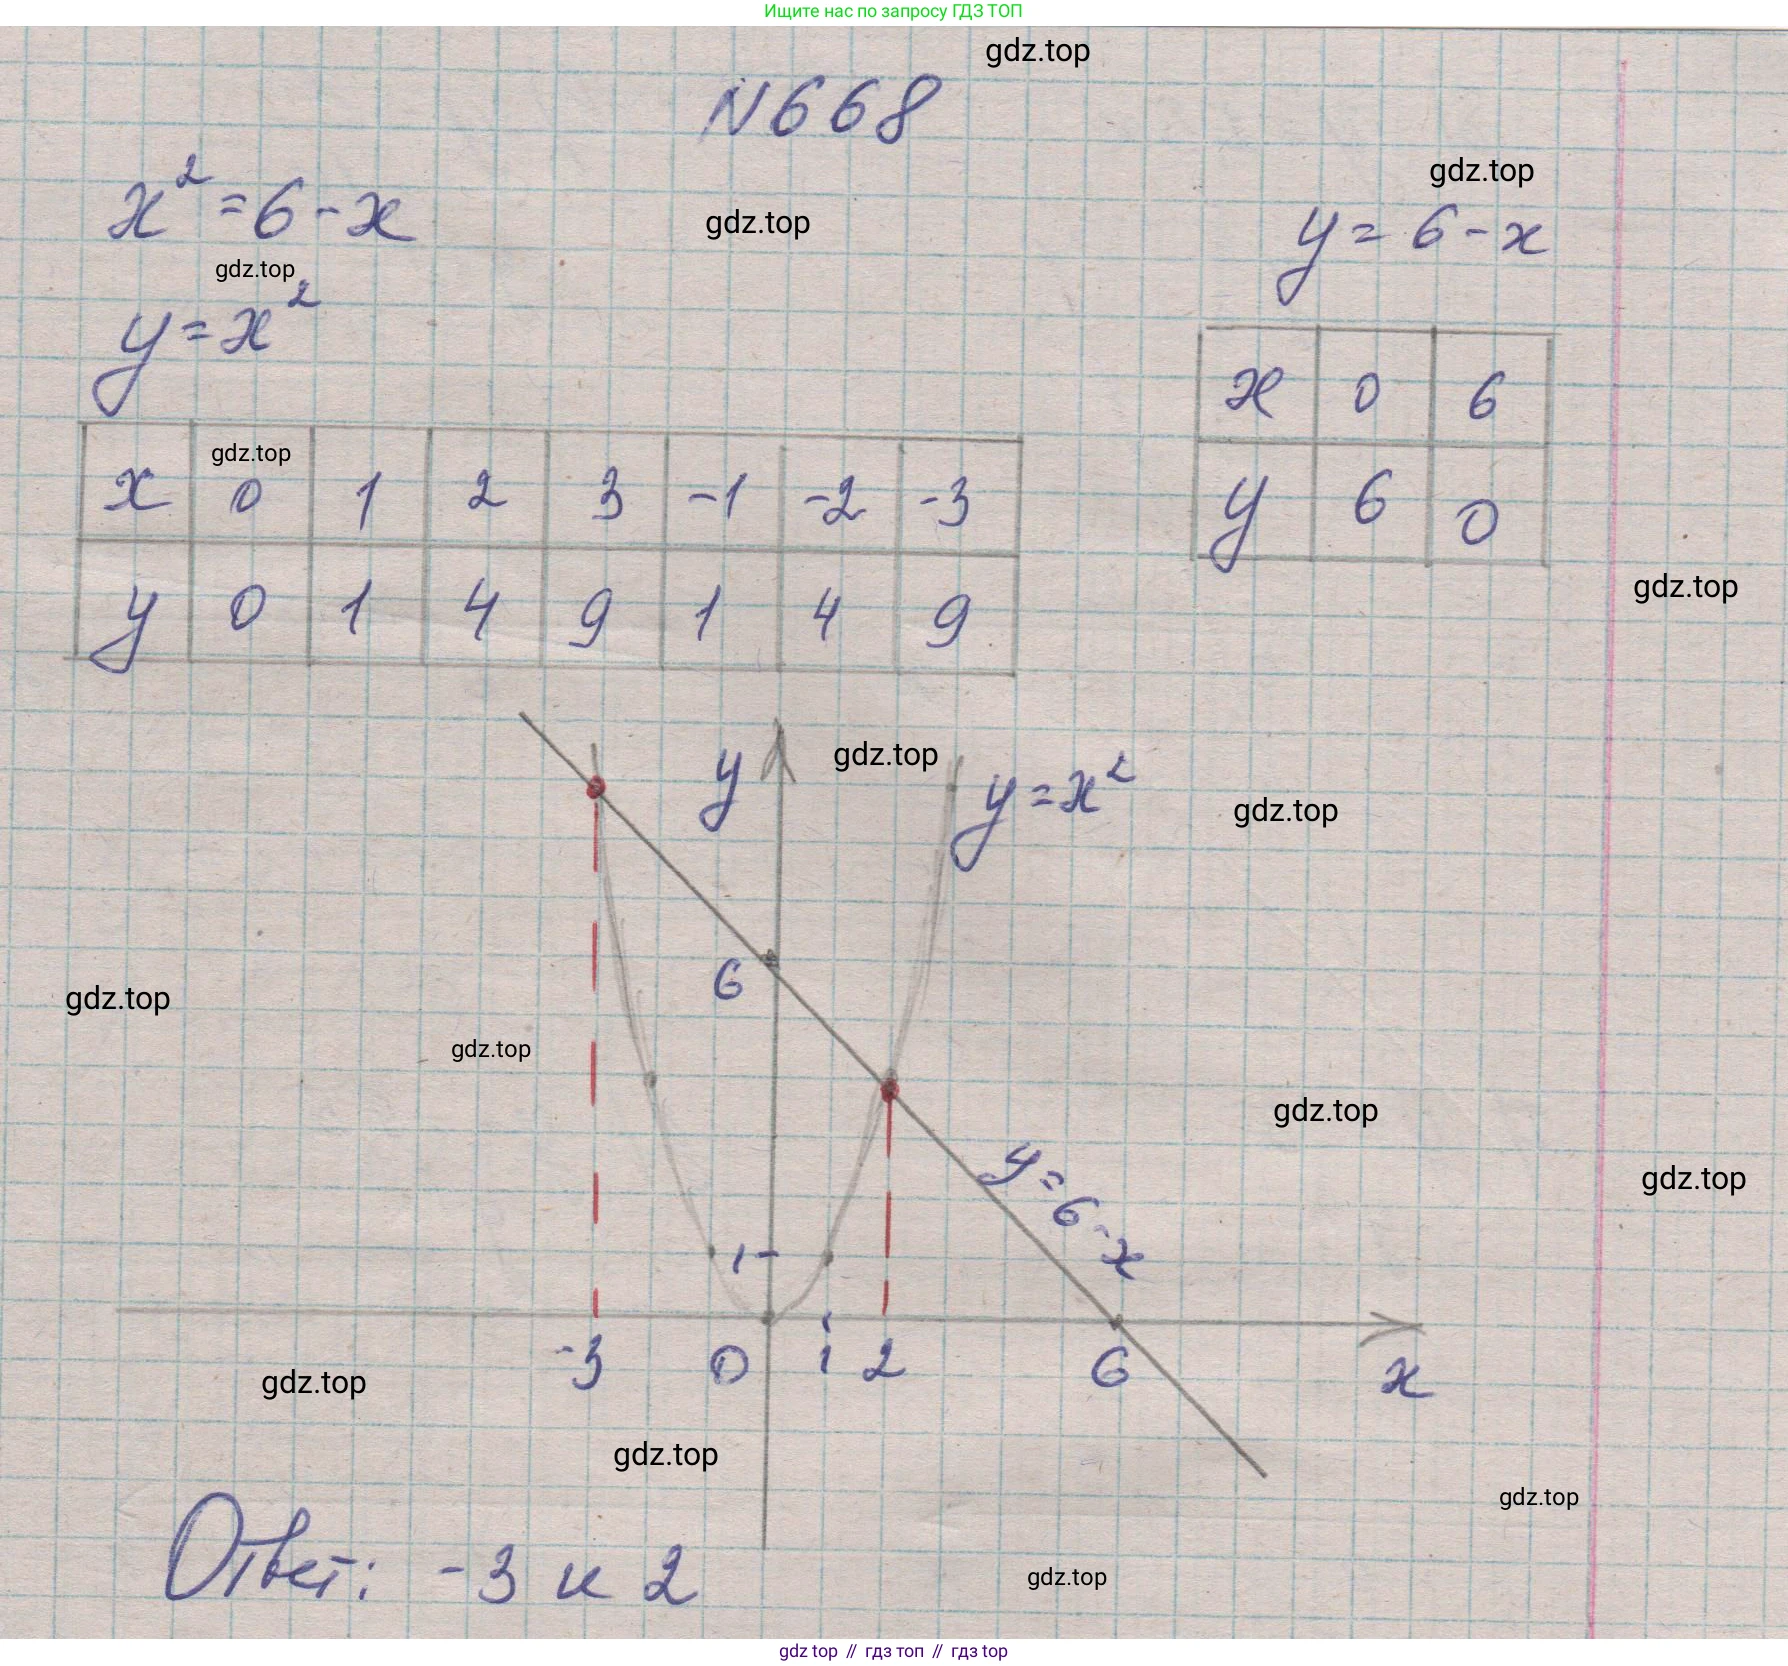 Ищите нас по запросу ГДЗ ТОП
gdz.top
N668
gdz.top
x² = 6 - x
gdz.top
y = 6 - x
gdz.top
y = x²
x 0 6
y 6 0
gdz.top
x 0 1 2 3 -1 -2 -3
y 0 1 4 9 1 4 9
gdz.top
y
gdz.top
y = x²
gdz.top
6
gdz.top
gdz.top
gdz.top
y = 6 - x
gdz.top
1
-3 0 1 2 6 x
gdz.top
gdz.top
gdz.top
Ответ: -3 и 2
gdz.top
gdz top // гдз топ // гдз top